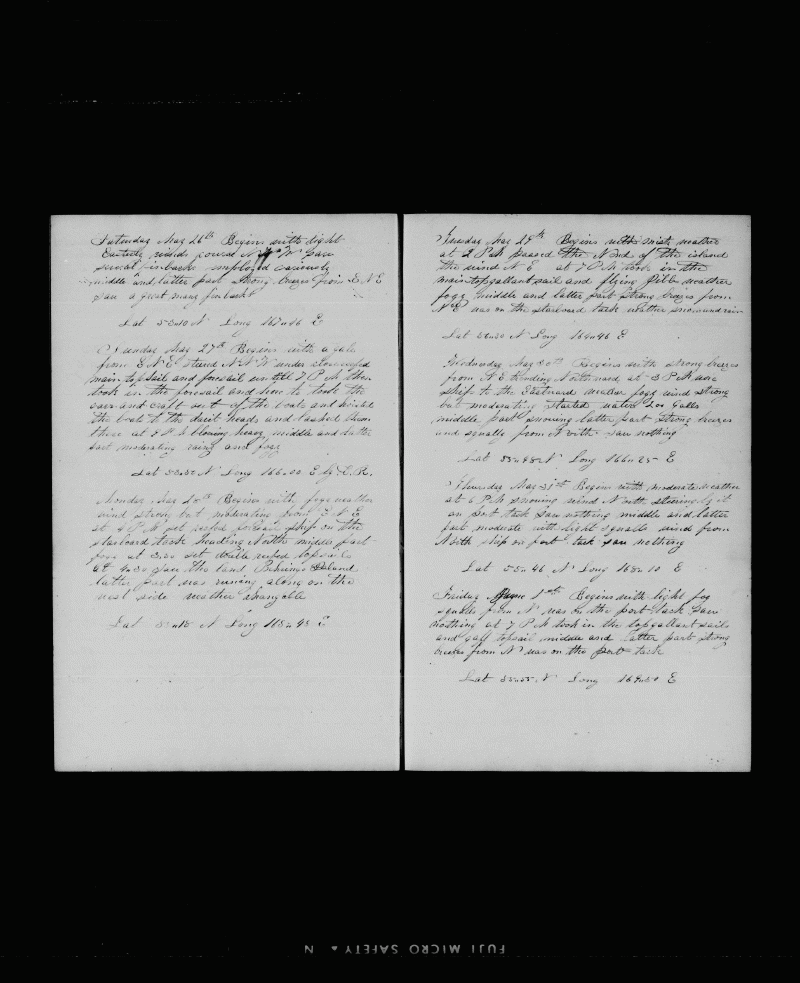 Saturday May 26th Begins with light
Easterly winds coursd N W saw
several finbacks employed variously
middle and latter part strong breezes from E N E
saw a great many finbacks
Lat N Long E
Sunday May 27th Begins with a gale
from E N E steerd N N W under close reefed
main topsail and foresail untill 7 P M then
took in the foresail and hove to took the
oars and craft out of the boats and hoisted
the boats to the davit heads and lashed them
there at 8 P M blowing heavy middle and latter
part moderating rainy and fogg
Lat N Long E by D. R.
Monday May 28th Begins with foggy weather
wind strong but moderating from E N E
at 4 P M set reefed foresail ship on the
starboard tack heading North middle part
fogg at 3,30 set double reefed topsails
at 4.30 saw the land Behrings Island
latter part was running along on the
west side weather changable
Lat N Long E
Tuesday May 29th Begins with misty weather
at 2 P M passed the N end of the island
the wind N E at 7 P M took in the
main topgallant sail and flying jibb weather
fogg middle and latter part strong breezes from
N E was on the starboard tack weather snow and rain
Lat N Long E
Wednesday May 30th Begins with strong breezes
from N E hauling Northward at 3 P M wore
ship to the Eastward weather fogg wind strong
but moderating started water 200 Galls
middle part snowing latter part strong breezes
and squalls from North saw nothing
Lat 55 " 48 N Long 166 " 25 E
Thursday May 31st Begins with moderate weather
at 6 P M snowing wind North steering by it
on port tack saw nothing middle and latter
part moderate with light squalls wind from
North ship on port tack saw nothing
Lat 55 " 46 N Long 168 " 10 E
Friday June 1st Begins with light fog
squalls from N was on the port tack saw
nothing at 7 P M took in the topgallant sails
and gaff topsail middle and latter part strong
breezes from N was on the port tack
Lat 55 " 55 N Long E
FUJI MICRO SAFETY N